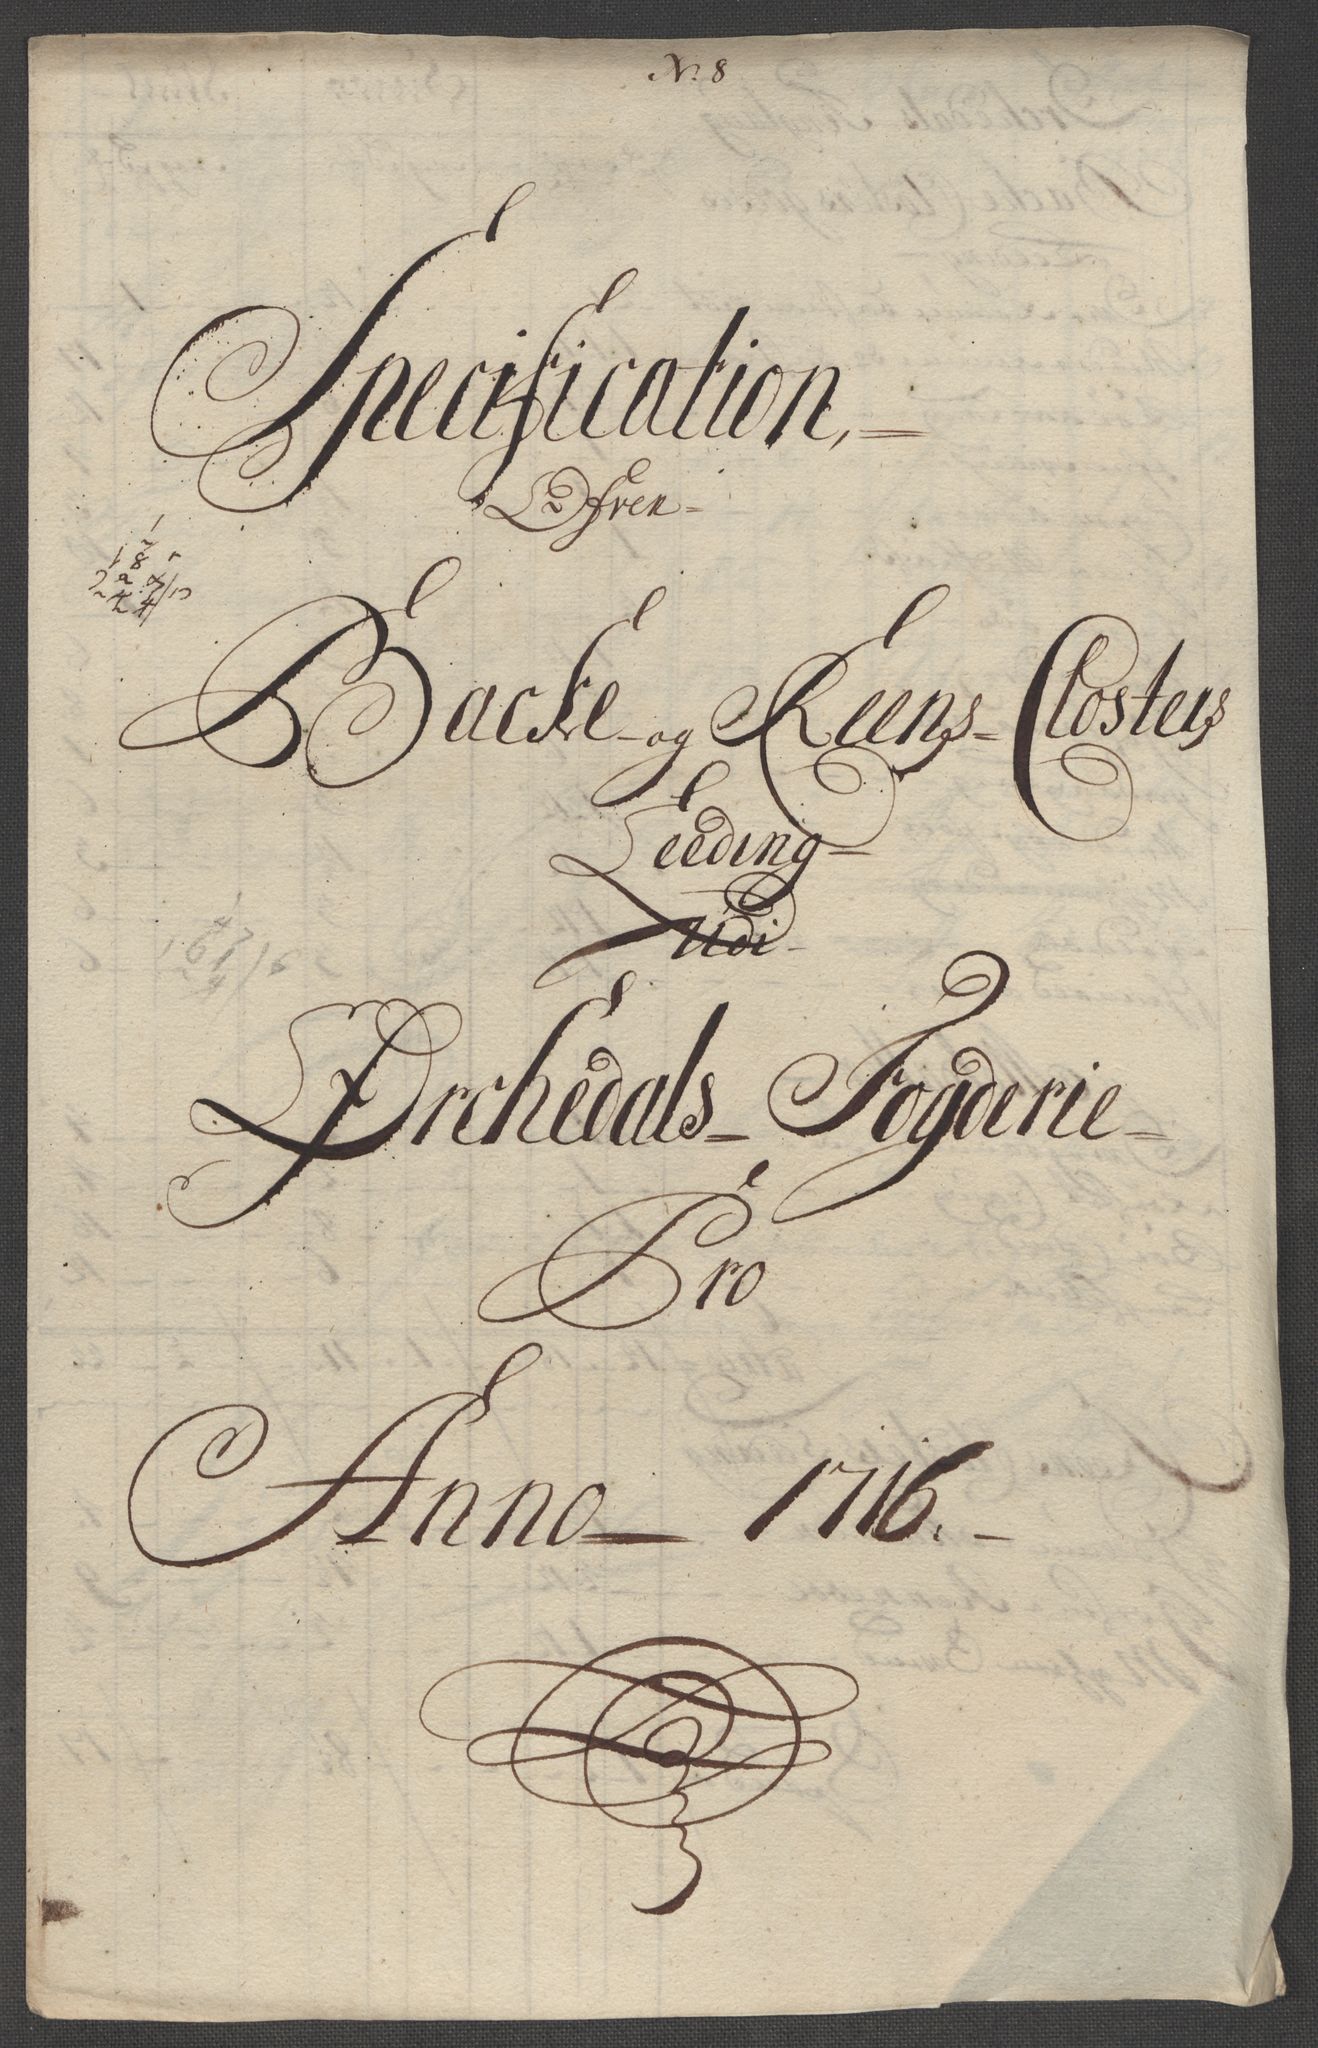 No 8
Specification,
Ofven
Backe og Reens Closters
Leeding
Udi
Orchedals Fogderie
Pro
Anno 1716.